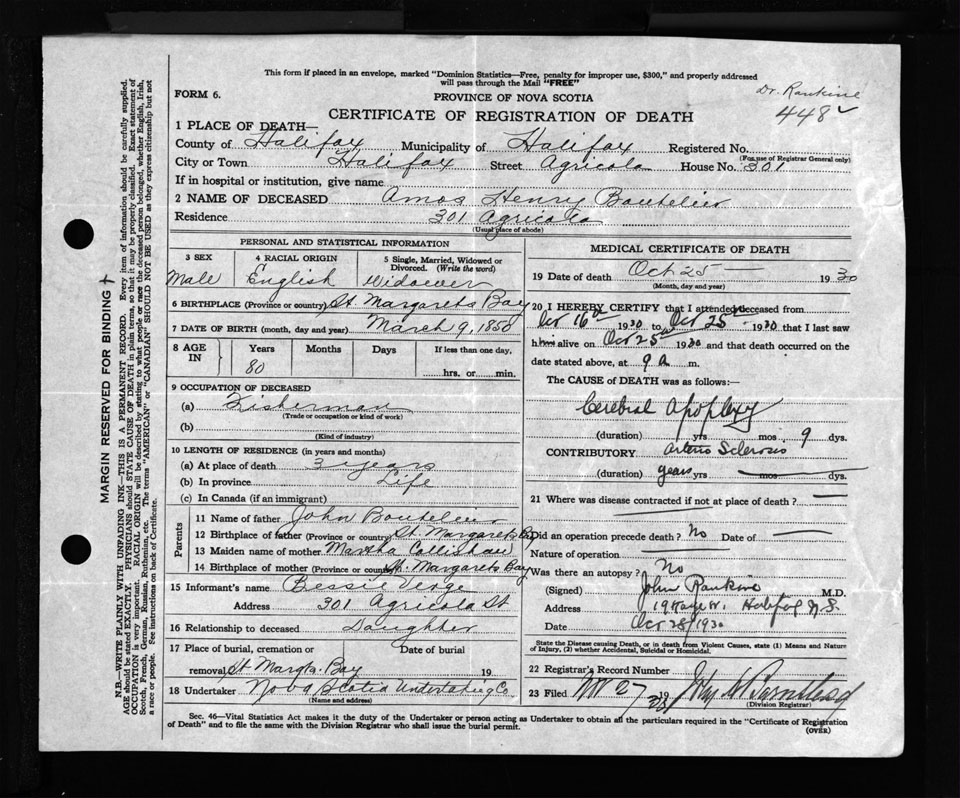 This form if placed in an envelope, marked "Dominion Statistics—Free, penalty for improper use, $300," and properly addressed
will pass through the Mail "FREE"
Dr. Rankine
448
FORM 6.
PROVINCE OF NOVA SCOTIA
CERTIFICATE OF REGISTRATION OF DEATH
1 PLACE OF DEATH—
County of Halifax Municipality of Halifax Registered No.
(For use of Registrar General only)
City or Town Halifax Street Agricola House No. 301
If in hospital or institution, give name
2 NAME OF DECEASED Amos Henry Boutelier
Residence 301 Agricola
(Usual place of abode)
PERSONAL AND STATISTICAL INFORMATION
3 SEX 4 RACIAL ORIGIN 5 Single, Married, Widowed or Divorced. (Write the word)
Male English Widower
6 BIRTHPLACE (Province or country) St. Margarets Bay
7 DATE OF BIRTH (month, day and year) March 9, 1850
8 AGE IN Years Months Days If less than one day,
80 hrs. or min.
9 OCCUPATION OF DECEASED
(a) Fisherman
(Trade or occupation or kind of work)
(b)
(Kind of industry)
10 LENGTH OF RESIDENCE (in years and months)
(a) At place of death 3 years
(b) In province Life
(c) In Canada (if an immigrant)
Parents
11 Name of father John Boutelier
12 Birthplace of father (Province or country) St. Margarets Bay
13 Maiden name of mother Martha Collishaw
14 Birthplace of mother (Province or country) St. Margarets Bay
15 Informant's name Bessie Verge
Address 301 Agricola St
16 Relationship to deceased Daughter
17 Place of burial, cremation or Date of burial
removal St Margts. Bay 19
18 Undertaker Nova Scotia Undertaking Co
(Name and address)
MEDICAL CERTIFICATE OF DEATH
19 Date of death Oct 25 — 1930
(Month, day and year)
20 I HEREBY CERTIFY that I attended deceased from
Oct 16th 1930 to Oct 25th 1930 that I last saw
h alive on Oct 25th 1930 and that death occurred on the
date stated above, at 9 a m.
The CAUSE OF DEATH was as follows:
Cerebral Apoplexy
(duration) yrs mos 9 dys.
CONTRIBUTORY Arterio Sclerosis
(duration) years yrs mos dys.
21 Where was disease contracted if not at place of death? —
Did an operation precede death? No Date of —
Nature of operation —
Was there an autopsy? No
(Signed) John Rankine M.D.
Address Halifax N.S.
Date Oct 28/1930
State the Disease causing Death, or in death from Violent Causes, state (1) Means and Nature
of Injury, (2) whether Accidental, Suicidal or Homicidal.
22 Registrar's Record Number
23 Filed Nov 27 19
(Division Registrar)
Sec. 46—Vital Statistics Act makes it the duty of the Undertaker or person acting as Undertaker to obtain all the particulars required in the "Certificate of Registration
of Death" and to file the same with the Division Registrar who shall issue the burial permit. (OVER)
MARGIN RESERVED FOR BINDING
N.B.—WRITE PLAINLY WITH UNFADING INK—THIS IS A PERMANENT RECORD. Every item of information should be carefully supplied.
AGE should be stated EXACTLY. PHYSICIANS should STATE CAUSE OF DEATH in plain terms, so that it may be properly classified. Exact statement of
OCCUPATION is very important. RACIAL ORIGIN will be described by stating to what people or race the deceased person belonged, whether English, Irish,
Scotch, French, German, Russian, Ruthenian, etc. The terms "AMERICAN" or "CANADIAN" SHOULD NOT BE USED as they express citizenship but not
a race or people. See instructions on back of Certificate.